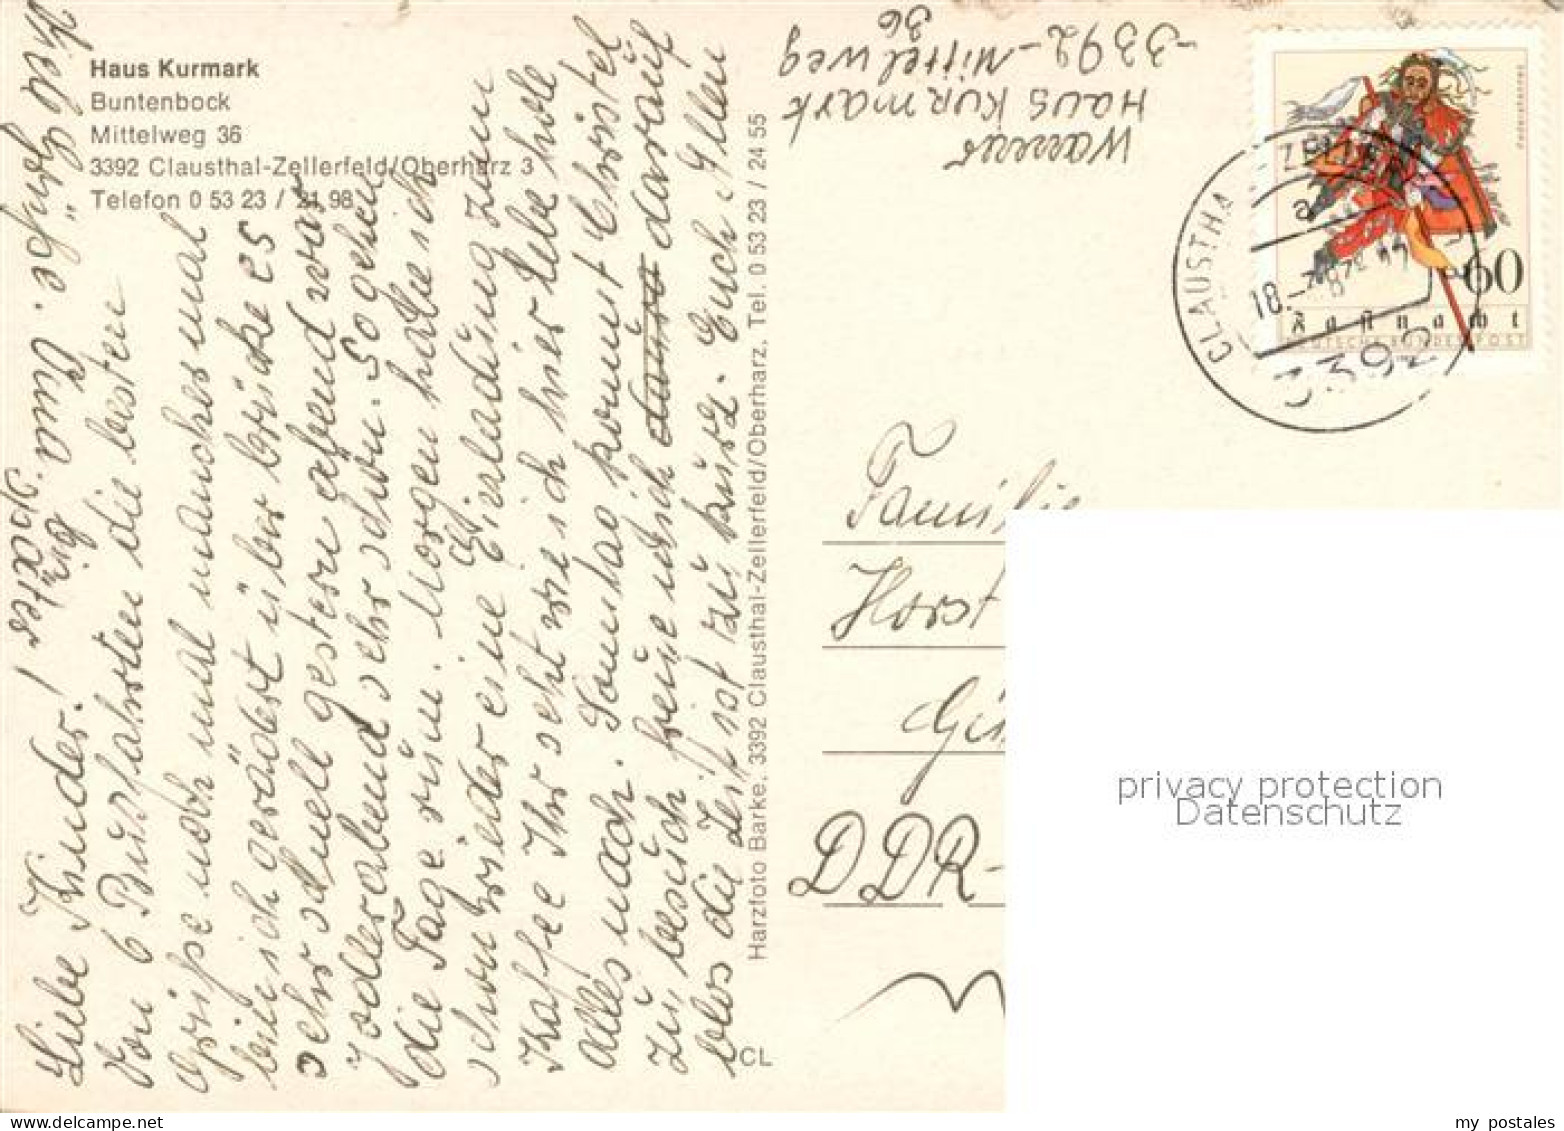 Haus Kurmark
Buntenbock
Mittelweg 36
3392 Clausthal-Zellerfeld/Oberharz 3
Telefon 0 53 23 / 21 98
Liebe Kinder!
Von 6 Busfahrten die besten
Grüße noch und manches mal
bin ich gerädert über brücke es
sehr schnell gestern abend war
Jodlerabend sehr schön. So gehen
die Tage rum. Morgen habe ich
schon wieder eine Einladung zum
Kaffee Ihr seht wie ich hier lebe hole
alles nach. Sonntag kommt Christel
zu besuch freue mich darauf
blos die Zeit ist zu kurz. Euch Allen
viel Grüße. Oma.
bis
später!
Harzfoto Barke, 3392 Clausthal-Zellerfeld/Oberharz, Tel. 0 53 23 / 24 55
CL
Haus Kurmark
-3392-Mittelweg
36
Federahannes
60
Fastnacht
DEUTSCHE BUNDESPOST
CLAUSTHAL
ZELLERF
a
18.-
3392
Familie
Horst
DDR-
privacy protection
Datenschutz
my postales